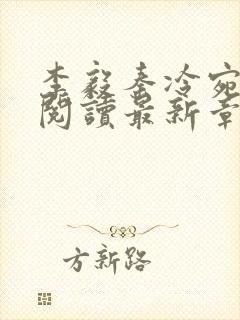 李毅秦冷宛
閱讀最新章
方新路